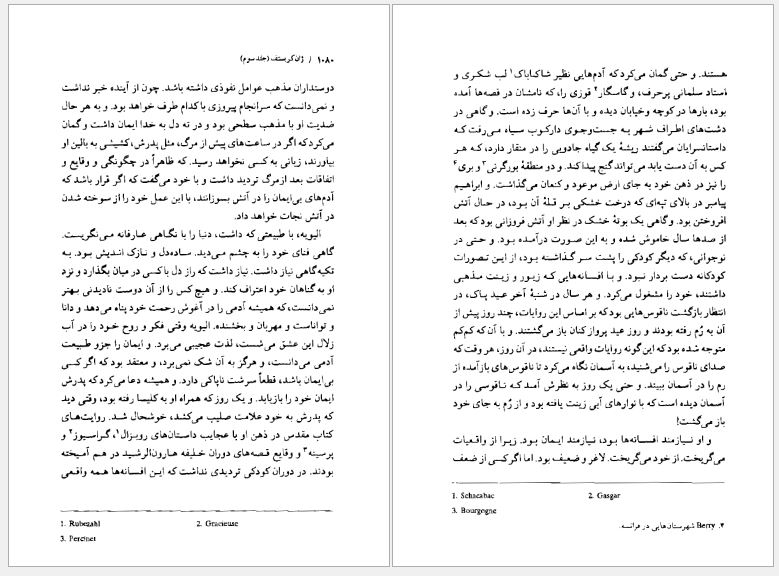 ۱۰۸۰ / ژان کریستف (جلد سوم)
دوستداران مذهب عوامل نفوذی داشته باشد. چون از آینده خبر نداشت
و نمی‌دانست که سرانجام پیروزی با کدام طرف خواهد بود. و به هر حال
ضدیت او با مذهب سطحی بود و در ته دل به خدا ایمان داشت و گمان
می‌کرد که اگر در ساعت‌های پیش از مرگ، مثل پدرش، کشیشی به بالین او
بیاورند، زیانی به کسی نخواهد رسید. که ظاهراً در چگونگی و وقایع و
اتفاقات بعد از مرگ تردید داشت و با خود می‌گفت که اگر قرار باشد که
آدم‌های بی‌ایمان را در آتش بسوزانند، با این عمل خود را از سوخته شدن
در آتش نجات خواهد داد.
الیویه، با طبیعتی که داشت، دنیا را با نگاهی عارفانه می‌نگریست.
گاهی فنای خود را به چشم می‌دید. ساده‌دل و نازک اندیش بود. به
تکیه‌گاهی نیاز داشت. نیاز داشت که راز دل با کسی در میان بگذارد و نزد
او به گناهان خود اعتراف کند. و هیچ کس را از آن دوست نادیدنی بهتر
نمی‌دانست، که همیشه آدمی را در آغوش رحمت خود پناه می‌دهد و دانا
و تواناست و مهربان و بخشنده. الیویه وقتی فکر و روح خود را در آب
زلال این عشق می‌شست، لذت عجیبی می‌برد. و ایمان را جزو طبیعت
آدمی می‌دانست، و هرگز به آن شک نمی‌برد، و معتقد بود که اگر کسی
بی‌ایمان باشد، قطعاً سرشت ناپاکی دارد. و همیشه دعا می‌کرد که پدرش
ایمان خود را بازیابد. و یک روز که همراه او به کلیسا رفته بود، وقتی دید
که پدرش به خود علامت صلیب می‌کشد، خوشحال شد. روایت‌های
کتاب مقدس در ذهن او با عجایب داستان‌های روبزال۱، گراسیوز۲ و
پرسینه۳ و وقایع قصه‌های دوران خلیفه هارون‌الرشید در هم آمیخته
بودند. در دوران کودکی تردیدی نداشت که این افسانه‌ها همه واقعی
1. Rubezahl 2. Gracieuse
3. Percinet
هستند. و حتی گمان می‌کرد که آدم‌هایی نظیر شاکاباک۱ لب شکری و
استاد سلمانی پرحرف، و گاسگار۲ قوزی را، که نامشان در قصه‌ها آمده
بود، بارها در کوچه و خیابان دیده و با آن‌ها حرف زده است. و گاهی در
دشت‌های اطراف شهر به جست‌وجوی دارکوب سیاه می‌رفت که
داستانسرایان می‌گفتند ریشهٔ یک گیاه جادویی را در منقار دارد، که هر
کس به آن دست یابد می‌تواند گنج پیدا کند. و دو منطقهٔ بورگرنی۳ و بری۴
را نیز در ذهن خود به جای ارض موعود و کنعان می‌گذاشت. و ابراهیم
پیامبر در بالای تپه‌ای که درخت خشکی بر قلهٔ آن بود، در حال آتش
افروختن بود. و گاهی یک بوتهٔ خشک در نظر او آتش فروزانی بود که بعد
از صدها سال خاموش شده و به این صورت درآمده بود. و حتی در
نوجوانی، که دیگر کودکی را پشت سر گذاشته بود، از این تصورات
کودکانه دست بردار نبود. و با افسانه‌هایی که زیور و زینت مذهبی
داشتند، خود را مشغول می‌کرد. و هر سال در شنبهٔ آخر عید پاک، در
انتظار بازگشت ناقوس‌هایی بود که بر اساس این روایات، چند روز پیش از
آن به رُم رفته بودند و روز عید پرواز کنان باز می‌گشتند. و با آن که کم‌کم
متوجه شده بود که این گونه روایات واقعی نیستند، در آن روز، هر وقت که
صدای ناقوس را می‌شنید، به آسمان نگاه می‌کرد تا ناقوس‌های بازآمده از
رم را در آسمان ببیند. و حتی یک روز به نظرش آمد که ناقوسی را در
آسمان دیده است که با نوارهای آبی زینت یافته بود و از رُم به جای خود
باز می‌گشت!
و او نیازمند افسانه‌ها بود، نیازمند ایمان بود. زیرا از واقعیات
می‌گریخت. از خود می‌گریخت. لاغر و ضعیف بود. اما اگر کسی از ضعف
1. Schacabac 2. Gasgar
3. Bourgogne
۴. Berry شهرستان‌هایی در فرانسه.